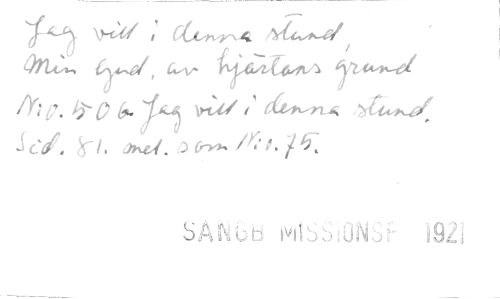 Jag vill i denna stund,
Min Gud, av hjärtans grund
N:o. 506 Jag vill i denna stund.
Sid. 81. mel. som N:o. 75.
SANGB MISSIONSF 1921